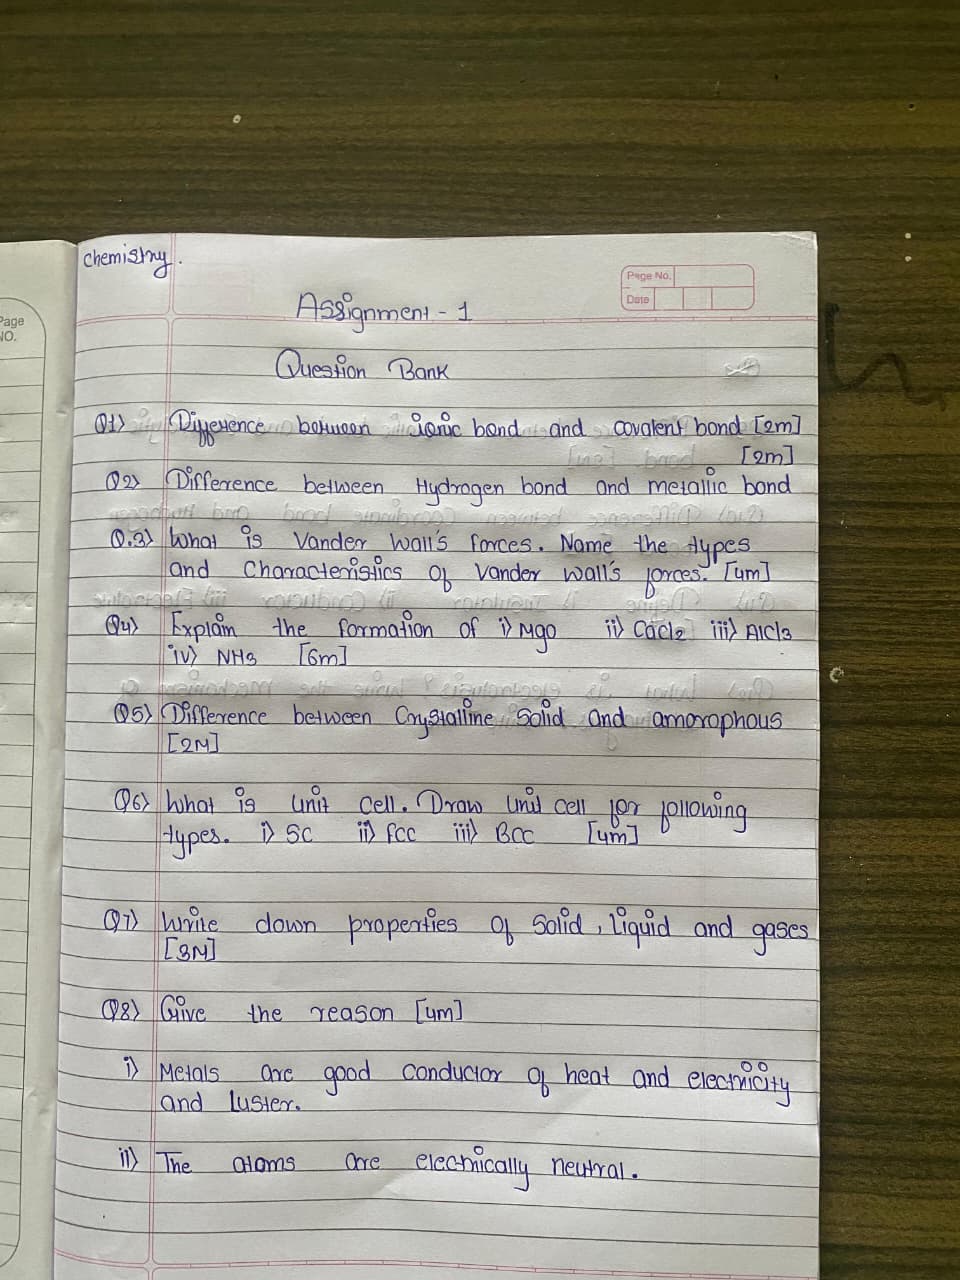 Page
NO.
chemistry.
Page No.
Date
Assignment - 1
Question Bank
Q1) Difference between ionic bond and covalent bond [2m]
[2m]
Q2) Difference between Hydrogen bond and metallic bond
Q.3) What is Vander Wall's forces. Name the types
and Characteristics of Vander Wall's forces. [4m]
Q4) Explain the formation of i) Mgo ii) Cacl2 iii) Alcl3
iv) NH3 [6m]
Q5) Difference between Crystalline Solid and amorophous
[2M]
Q6) What is Unit Cell. Draw Unit Cell for following
types. i) SC ii) fCC iii) BCC [4m]
Q7) Write down properties of Solid, Liquid and gases
[3M]
Q8) Give the reason [4m]
i) Metals are good conductor of heat and electricity
and luster.
ii) The atoms are electrically neutral.